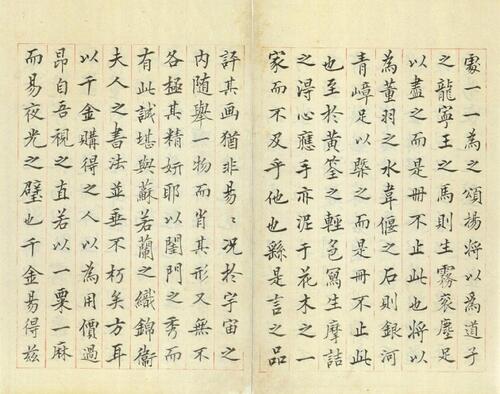 處一一為之頌揚將以為道子
之龍寧王之馬則生霧裛塵足
以盡之而是冊不止此也將以
為董羽之水韋偃之石則銀河
青嶂足以槩之而是冊不止此
也至於黃筌之輕色寫生摩詰
之得心應手亦泥于花木之一
家而不及乎他也繇是言之品
評其画猶非易〻況於宇宙之
内随舉一物而肖其形又無不
各極其精妍耶以閨門之秀而
有此誠堪與蘇若蘭之織錦衛
夫人之書法並垂不朽矣方耳
以千金購得之人以為用價過
昂自吾視之直若以一粟一麻
而易夜光之璧也千金易得兹